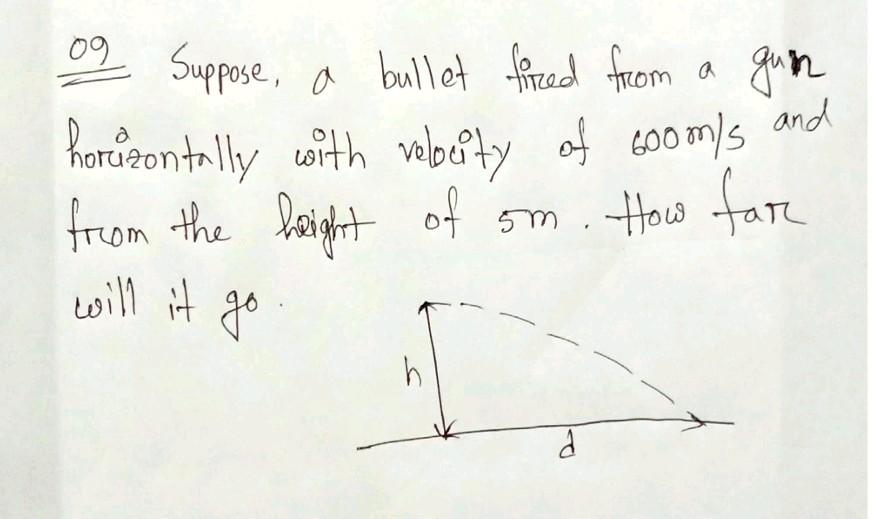 09 Suppose, a bullet fired from a gun
horizontally with velocity of 600m/s and
from the height of 5m. How far
will it go.
h
d